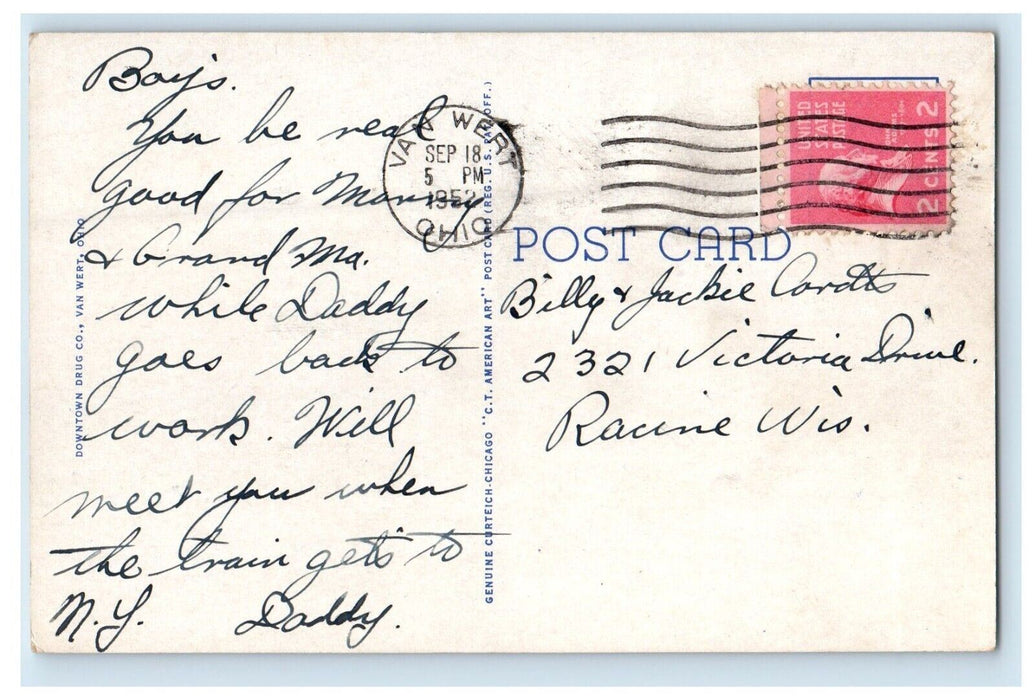 Boys.
You be real
good for Mommy
& Grand Ma.
while Daddy
goes back to
work. Will
meet you when
the train gets to
N.Y. Daddy.
DOWNTOWN DRUG CO., VAN WERT, OHIO
GENUINE CURTEICH-CHICAGO "C.T. AMERICAN ART" POST CARD (REG. U.S. PAT. OFF.)
VAN WERT
SEP 18
5 PM
1952
OHIO
UNITED
STATES
POSTAGE
2 CENTS 2
POST CARD
Billy & Jackie Cordts
2321 Victoria Drive.
Racine Wis.